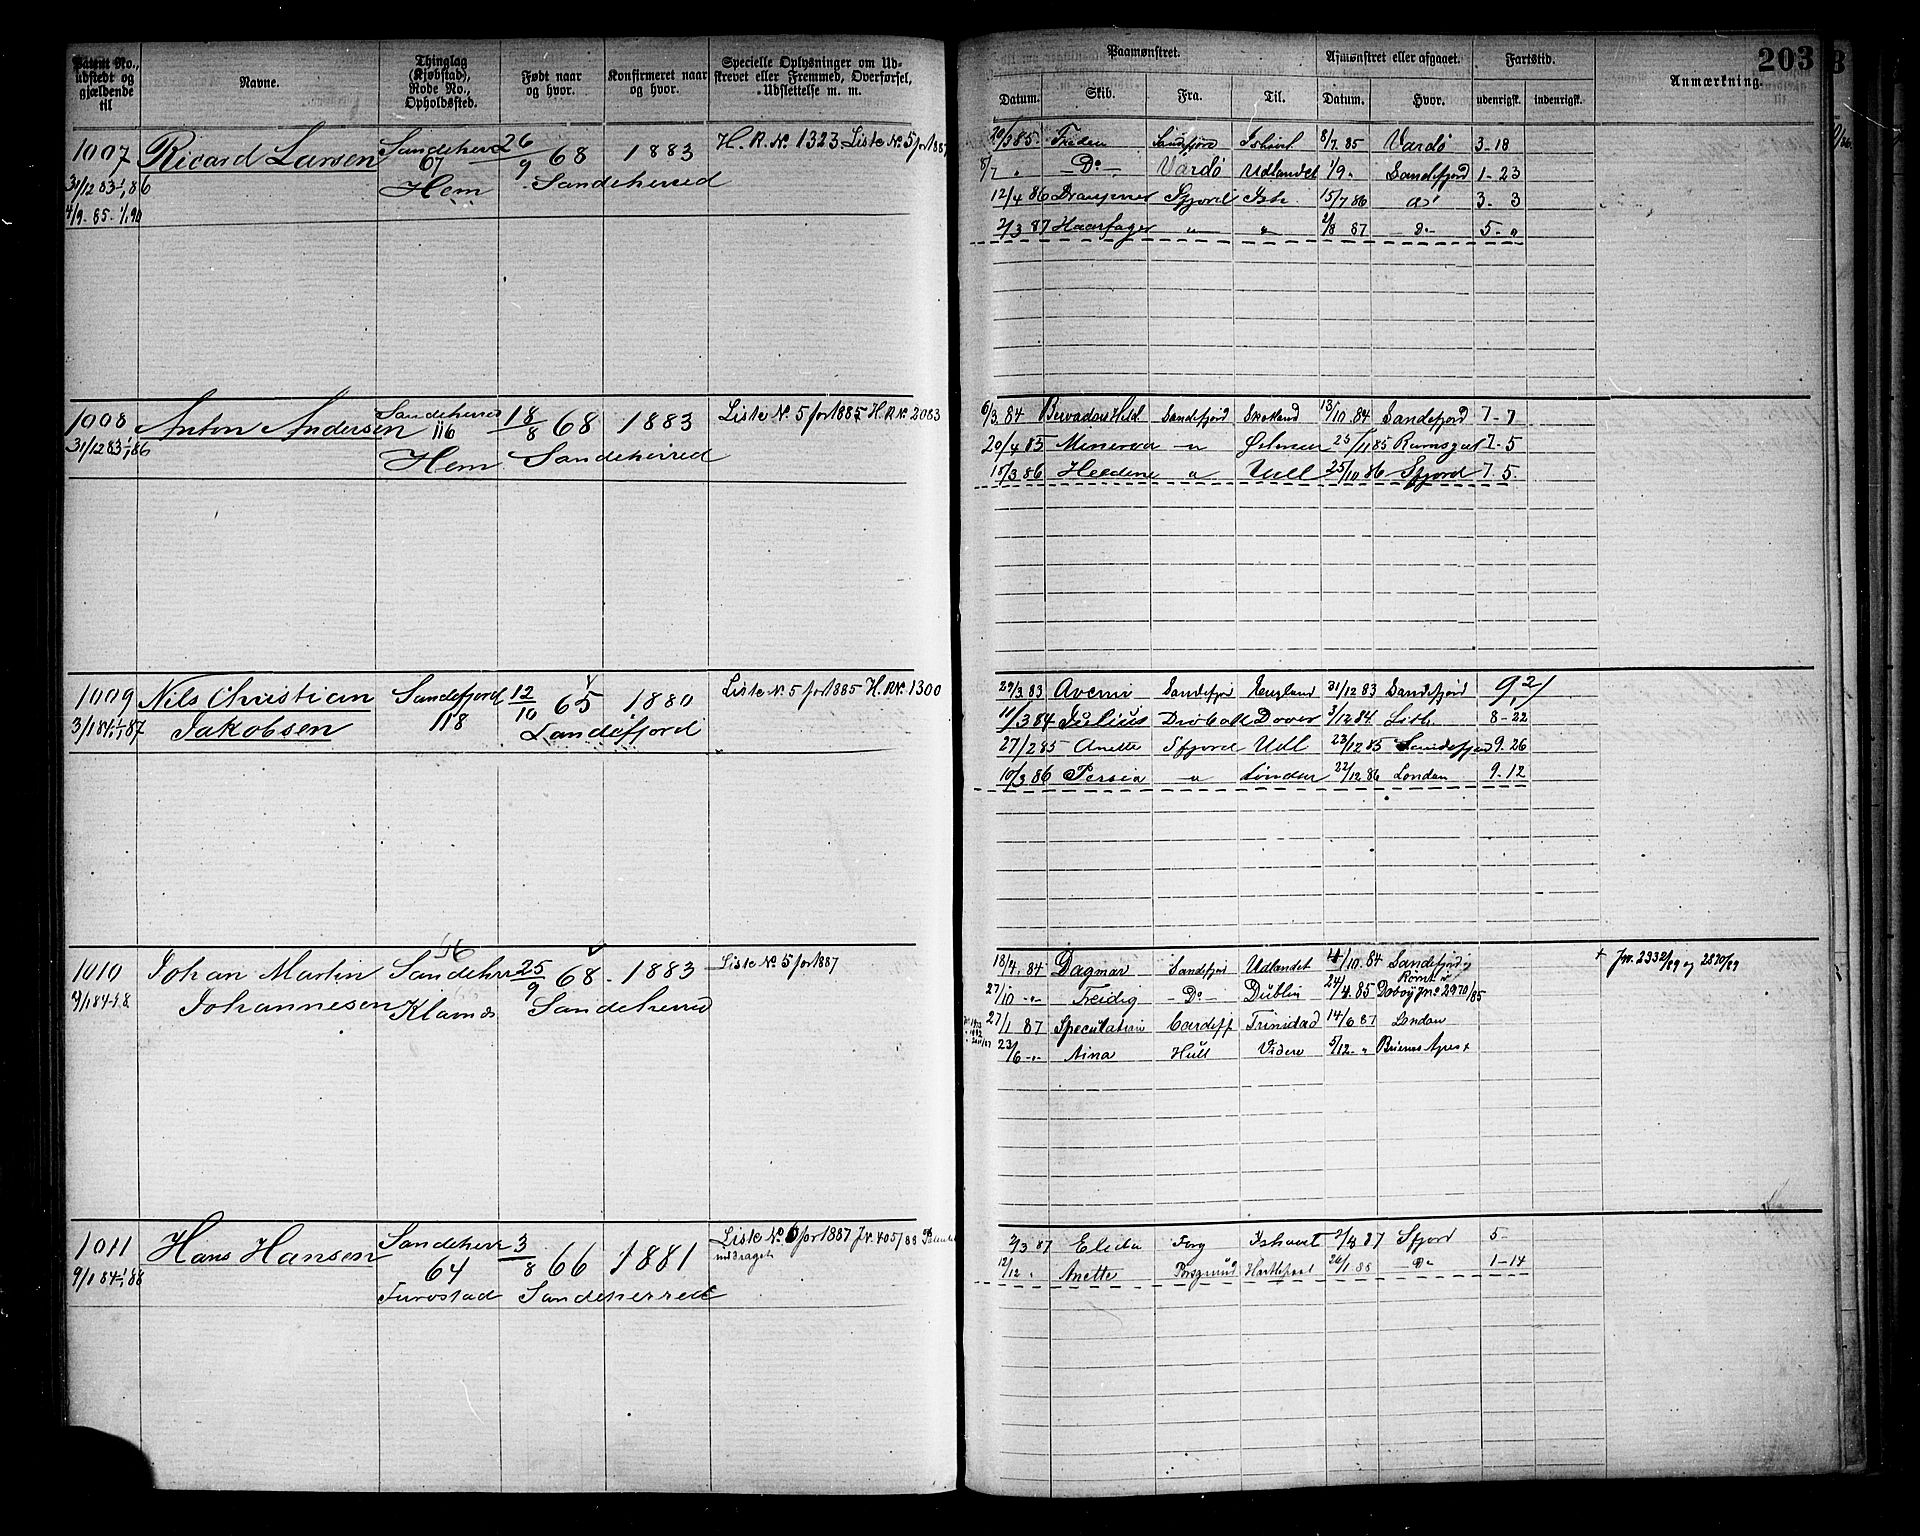 203
Patent No., udstedt og gjældende til
Navne.
Thinglag (Kjøbstad), Rode No., Opholdssted.
Født naar og hvor.
Konfirmeret naar og hvor.
Specielle Oplysninger om Udskrevet eller Fremmed, Overførsel, Udslettelse m. m.
Paamønstret.
Afmønstret eller afgaaet.
Fartstid.
Anmærkning.
Datum. Skib. Fra. Til. Datum. Hvor. udenrigsk. indenrigsk.
1007 Ricard Larsen Sandeherred 26/9 68 1883 H. R. No 1323 Liste No 5 for 1887
31/12 83-1/1 86 67 Sandeherred
4/9-85-1/1 90 Hem
Sandefjord Ishavet 8/7 85 Vardø 3-18
8/7 " Do Vardø Udlandet 1/9 " Sandefjord 1-23
12/4 86 Sfjord Ish. 15/7 86 do 3-3
2/3 87 Haarfager " " 2/8 87 do 5-"
1008 Anton Andersen Sandeherred 18/8 68 1883 Liste No. 5 for 1885 H. R. No. 2083
31/12 83-1/1 86 116
Hem Sandeherred
6/3 84 Sandefjord Skotland 13/10 84 Sandefjord 7-7
20/4 85 Minerva " 7-5
18/3 86 " 25/10 86 Sfjord 7-5
1009 Nils Christian Sandefjord 12/10 65 1880 Liste No. 5 for 1885 H. R. No. 1300
3/1 84-1/1 87 Jakobsen 118 Sandefjord
29/3 83 Sandefjord England 31/12 83 Sandefjord 9-21
11/3 84 Julius Drøbak Dover 3/12 84 Lith 8-22
27/2 85 Anette Sfjord Udl 23/12 85 Sandefjord 9-26
10/3 86 Persia " London 22/12 86 London 9-12
1010 Johan Martin Sandeherr 25/9 68 1883 Liste No. 5 for 1887
Johannesen Klavnes Sandeherred
18/4 84 Dagmar Sandefjord Udlandet 18/10 84 Sandefjord + Jn. 2332/89 og 2870/89
27/10 " Freidig Do Dublin 24/4 85 Jno 2970/85
27/1 87 Speculation Cardiff Trinidad 14/6 87 London
23/6 " Aina Hull Videre 5/12 "
1011 Hans Hansen Sandeherr 3/8 66 1881 Liste No. 6 for 1887 Jn. 405/88
inddraget
9/1 84-1/1 88 64
Furustad Sandeherred
2/3 87 Ishavet 2/8 87 Sfjord 5-
12/12 " Anette Porsgrund Hartlepool 26/1 88 Do 1-14